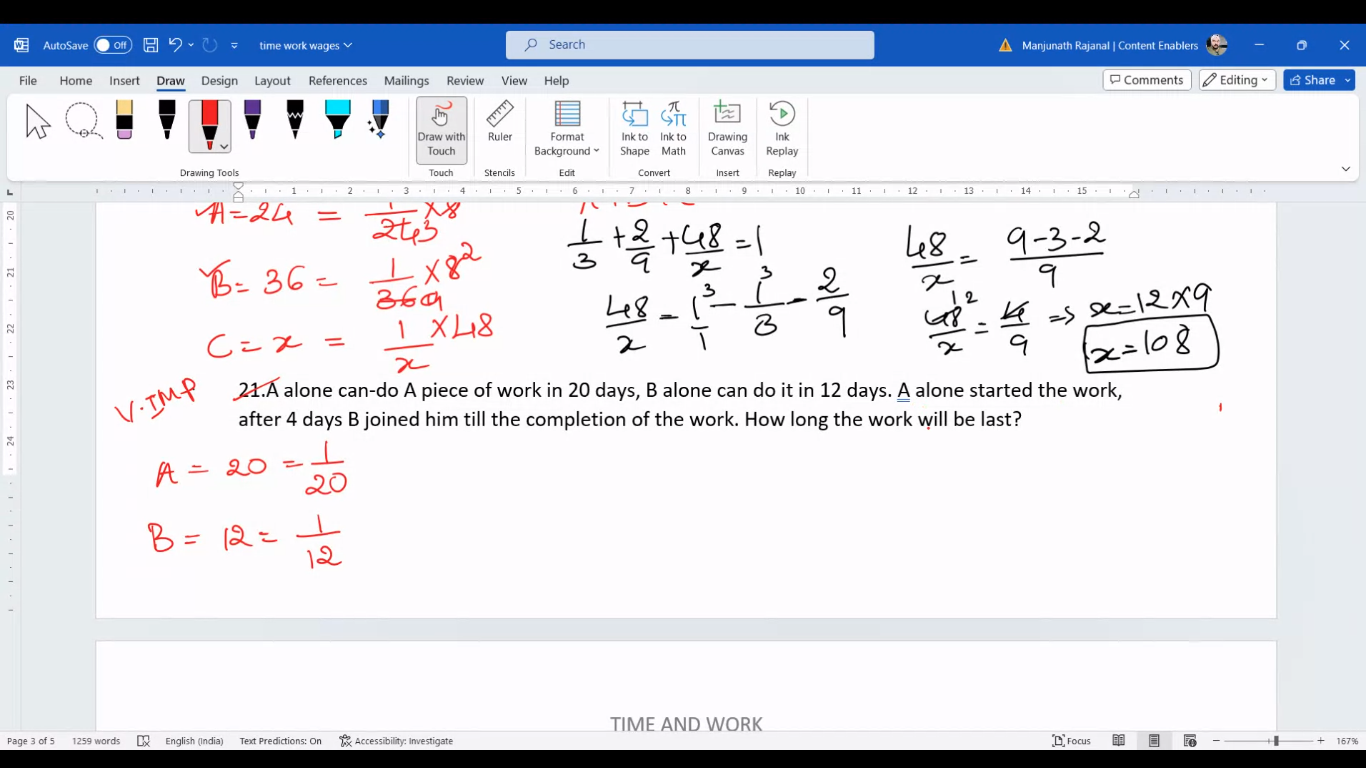 AutoSave Off time work wages Search Manjunath Rajanal | Content Enablers
File Home Insert Draw Design Layout References Mailings Review View Help Comments Editing Share
Draw with Touch Ruler Format Background Ink to Shape Ink to Math Drawing Canvas Ink Replay
Drawing Tools Touch Stencils Edit Convert Insert Replay
1 2 3 4 5 6 7 8 9 10 11 12 13 14 15
20
21
22
23
24
A=24 = 1/24 3 ×8
B= 36 = 1/36 9 ×8 2
C = x = 1/x ×48
1/3 + 2/9 + 48/x = 1
48/x = 1 3/1 − 1 3/3 − 2/9
48/x = 9-3-2/9
48 12/x = 4/9 ⇒ x=12×9
x=108
V.IMP
21.A alone can-do A piece of work in 20 days, B alone can do it in 12 days. A alone started the work,
after 4 days B joined him till the completion of the work. How long the work will be last?
A = 20 = 1/20
B = 12 = 1/12
TIME AND WORK
Page 3 of 5 1259 words English (India) Text Predictions: On Accessibility: Investigate Focus 167%